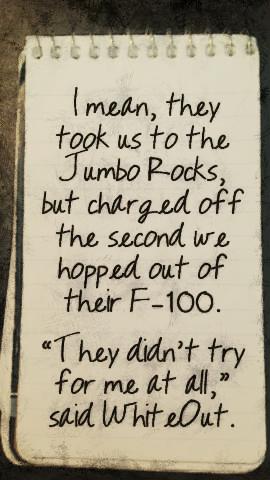 I mean, they
took us to the
Jumbo Rocks,
but charged off
the second we
hopped out of
their F-100.
“They didn’t try
for me at all,”
said WhiteOut.